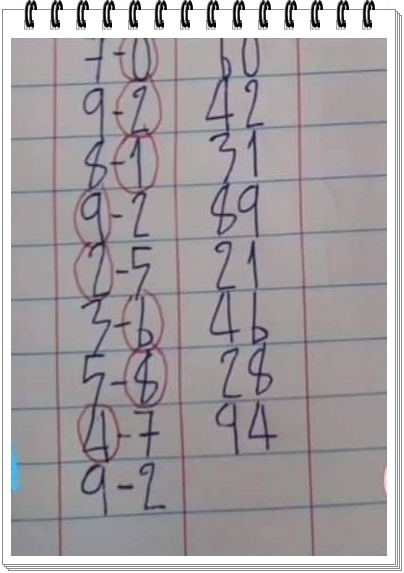 7-0 60
9-2 42
8-1 31
9-2 89
2-5 21
3-6 46
5-8 28
4-7 94
9-2